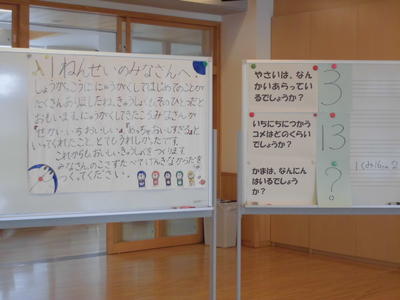 1ねんせいのみなさんへ!
しょうがっこうににゅうがくしてはじめてのことが
たくさんありましたね。きゅうしょくもそのひとつだと
おもいます。にゅうがくしてきたころ、みなさんが
『せかいいちおいしい。』『めっちゃおいしすぎる。』と
いってくれたこと、とてもうれしかったです。
これからもおいしいきゅうしょくをつくります。
みなさんものこさずたべてげんきなからだを
つくってください。
やさいは、なん
かいあらってい
るでしょうか?
3
いちにちにつかう
コメはどのくらい
でしょうか?
13
かまは、なんにん
はいるでしょう
か?
?